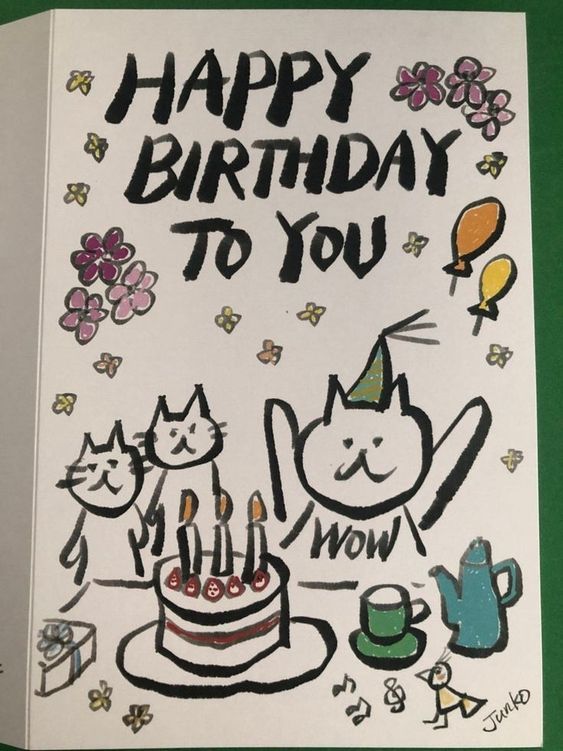 HAPPY
BIRTHDAY
TO YOU
WOW
Junko